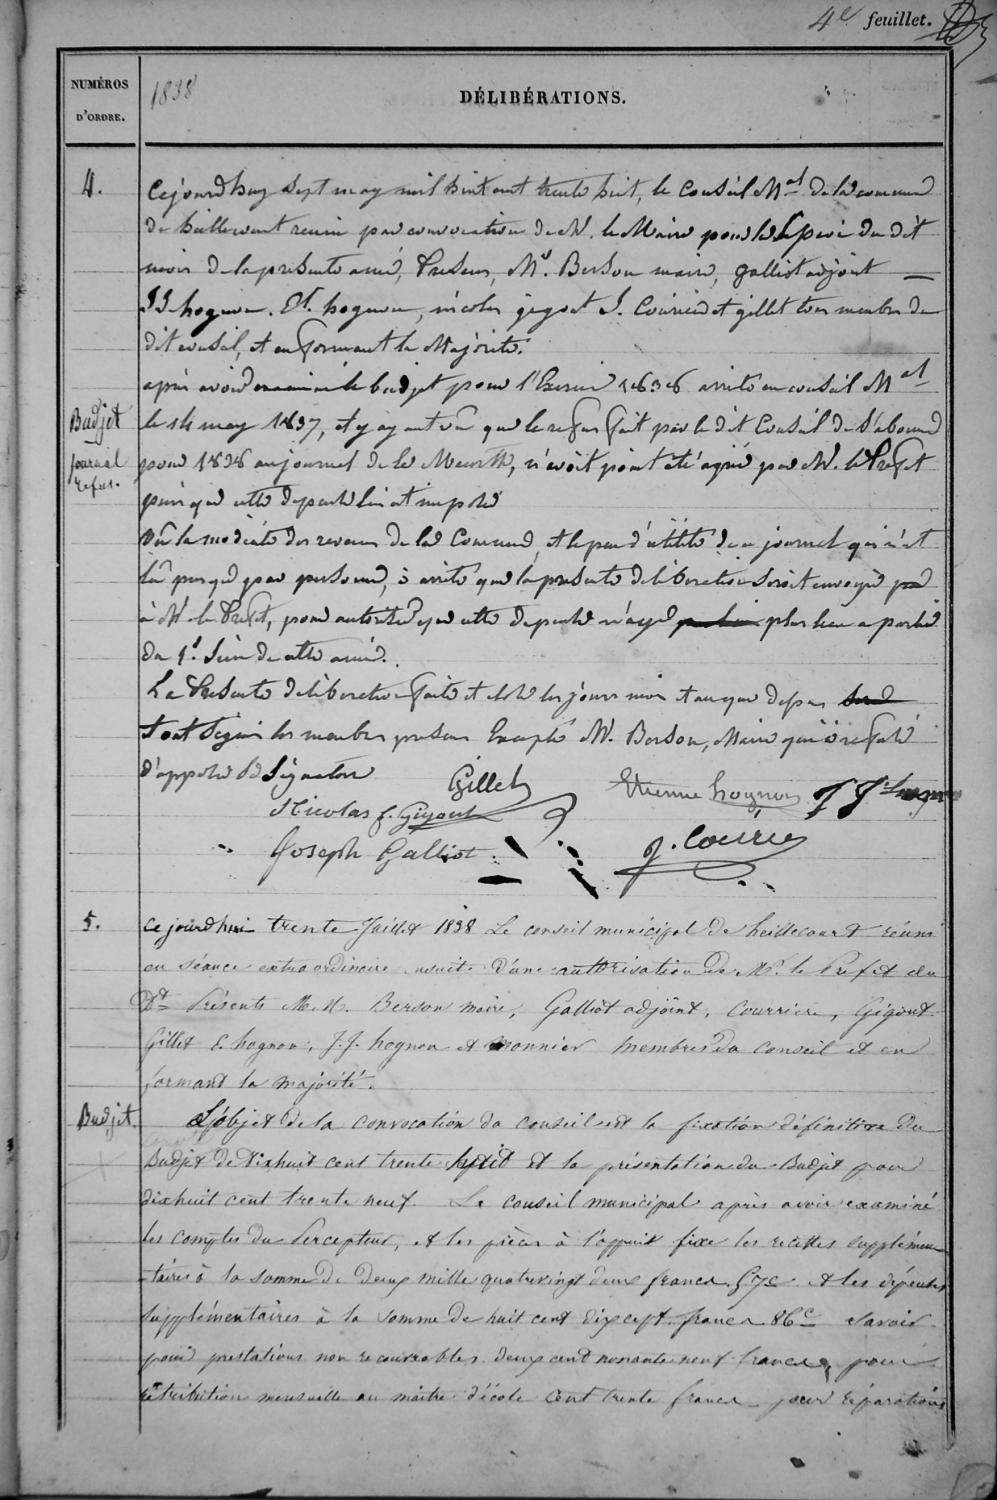 4e feuillet.
NUMÉROS
D'ORDRE.
1838
DÉLIBÉRATIONS.
4.
Cejourdhuy sept may mil huit cent trente huit, le Conseil Mal de la commune
de heillecourt reuni par convocation de M. le Maire pour la Session du dit
mois de la presente année, Presens, Mr Berson maire, galliot adjoint
J J hognon. Et. hognon, nicolas gigout J. Courrier et gillet tous membre du
dit conseil, et en formant la Majorité.
après avoir examiné le budjet pour l'Exercice 1838 arreté en conseil Mal
Budjet
le 14 may 1837, et y ayant vu que le refus fait par le dit Conseil de s'abonner
journal
refus.
pour 1838 au journal de la Meurthe, n'avoit point été agréé par M. le Prefet
puisque cette depense lui est imposé
Vu la modicité des revenus de la Commune, et le peu d'utilité de ce journal qui n'est
lu presque par personne, à arrêté que la presente deliberation seroit envoyée
à M. le Prefet, pour autorité que cette depense n'aye plus lieu a partir
du 1r Juin de cette année.
La Presente deliberation faite et close les jours mois et an que depas
tout signés les membres presens Excepté M. Berson, Maire qui à refusé
d'apposer sa signature
Gillet
Etienne hognon
J J hognon
Nicolas f. Gigout
Joseph Galliot
J. Courrier
5.
Ce jourd'hui trente Juillet 1838 Le conseil municipal de heillecourt réuni
en séance extraordinaire ensuite d'une autorisation de Mr. le Préfet du
Dt Présents M. M. Berson maire, Galliot adjoint, Courrier, Gigout
Gillet E. hognon, J. J. hognon et monnier membres du conseil et en
formant la majorité.
Budjet.
L'objet de la convocation du conseil est la fixation définitive du
Budjet de dixhuit cent trente huit et la présentation du Budjet pour
dixhuit cent trente neuf. Le conseil municipal après avoir examiné
les comptes du Percepteur, et les pièces à l'appuit fixe les recettes supplémen
-taires à la somme de deux mille quatrevingt deux francs 57c et les dépenses
supplémentaires à la somme de huit cent dixsept francs 86c Savoir
pour prestations non recouvrables deux cent nonante neuf francs, pour
rétribution mensuelle au maître d'école cent trente francs pour réparations